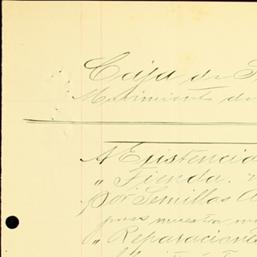 Caja de
Movimiento de
A Existencia
" Tienda
por Semillas
para nuestra
" Reparaciones